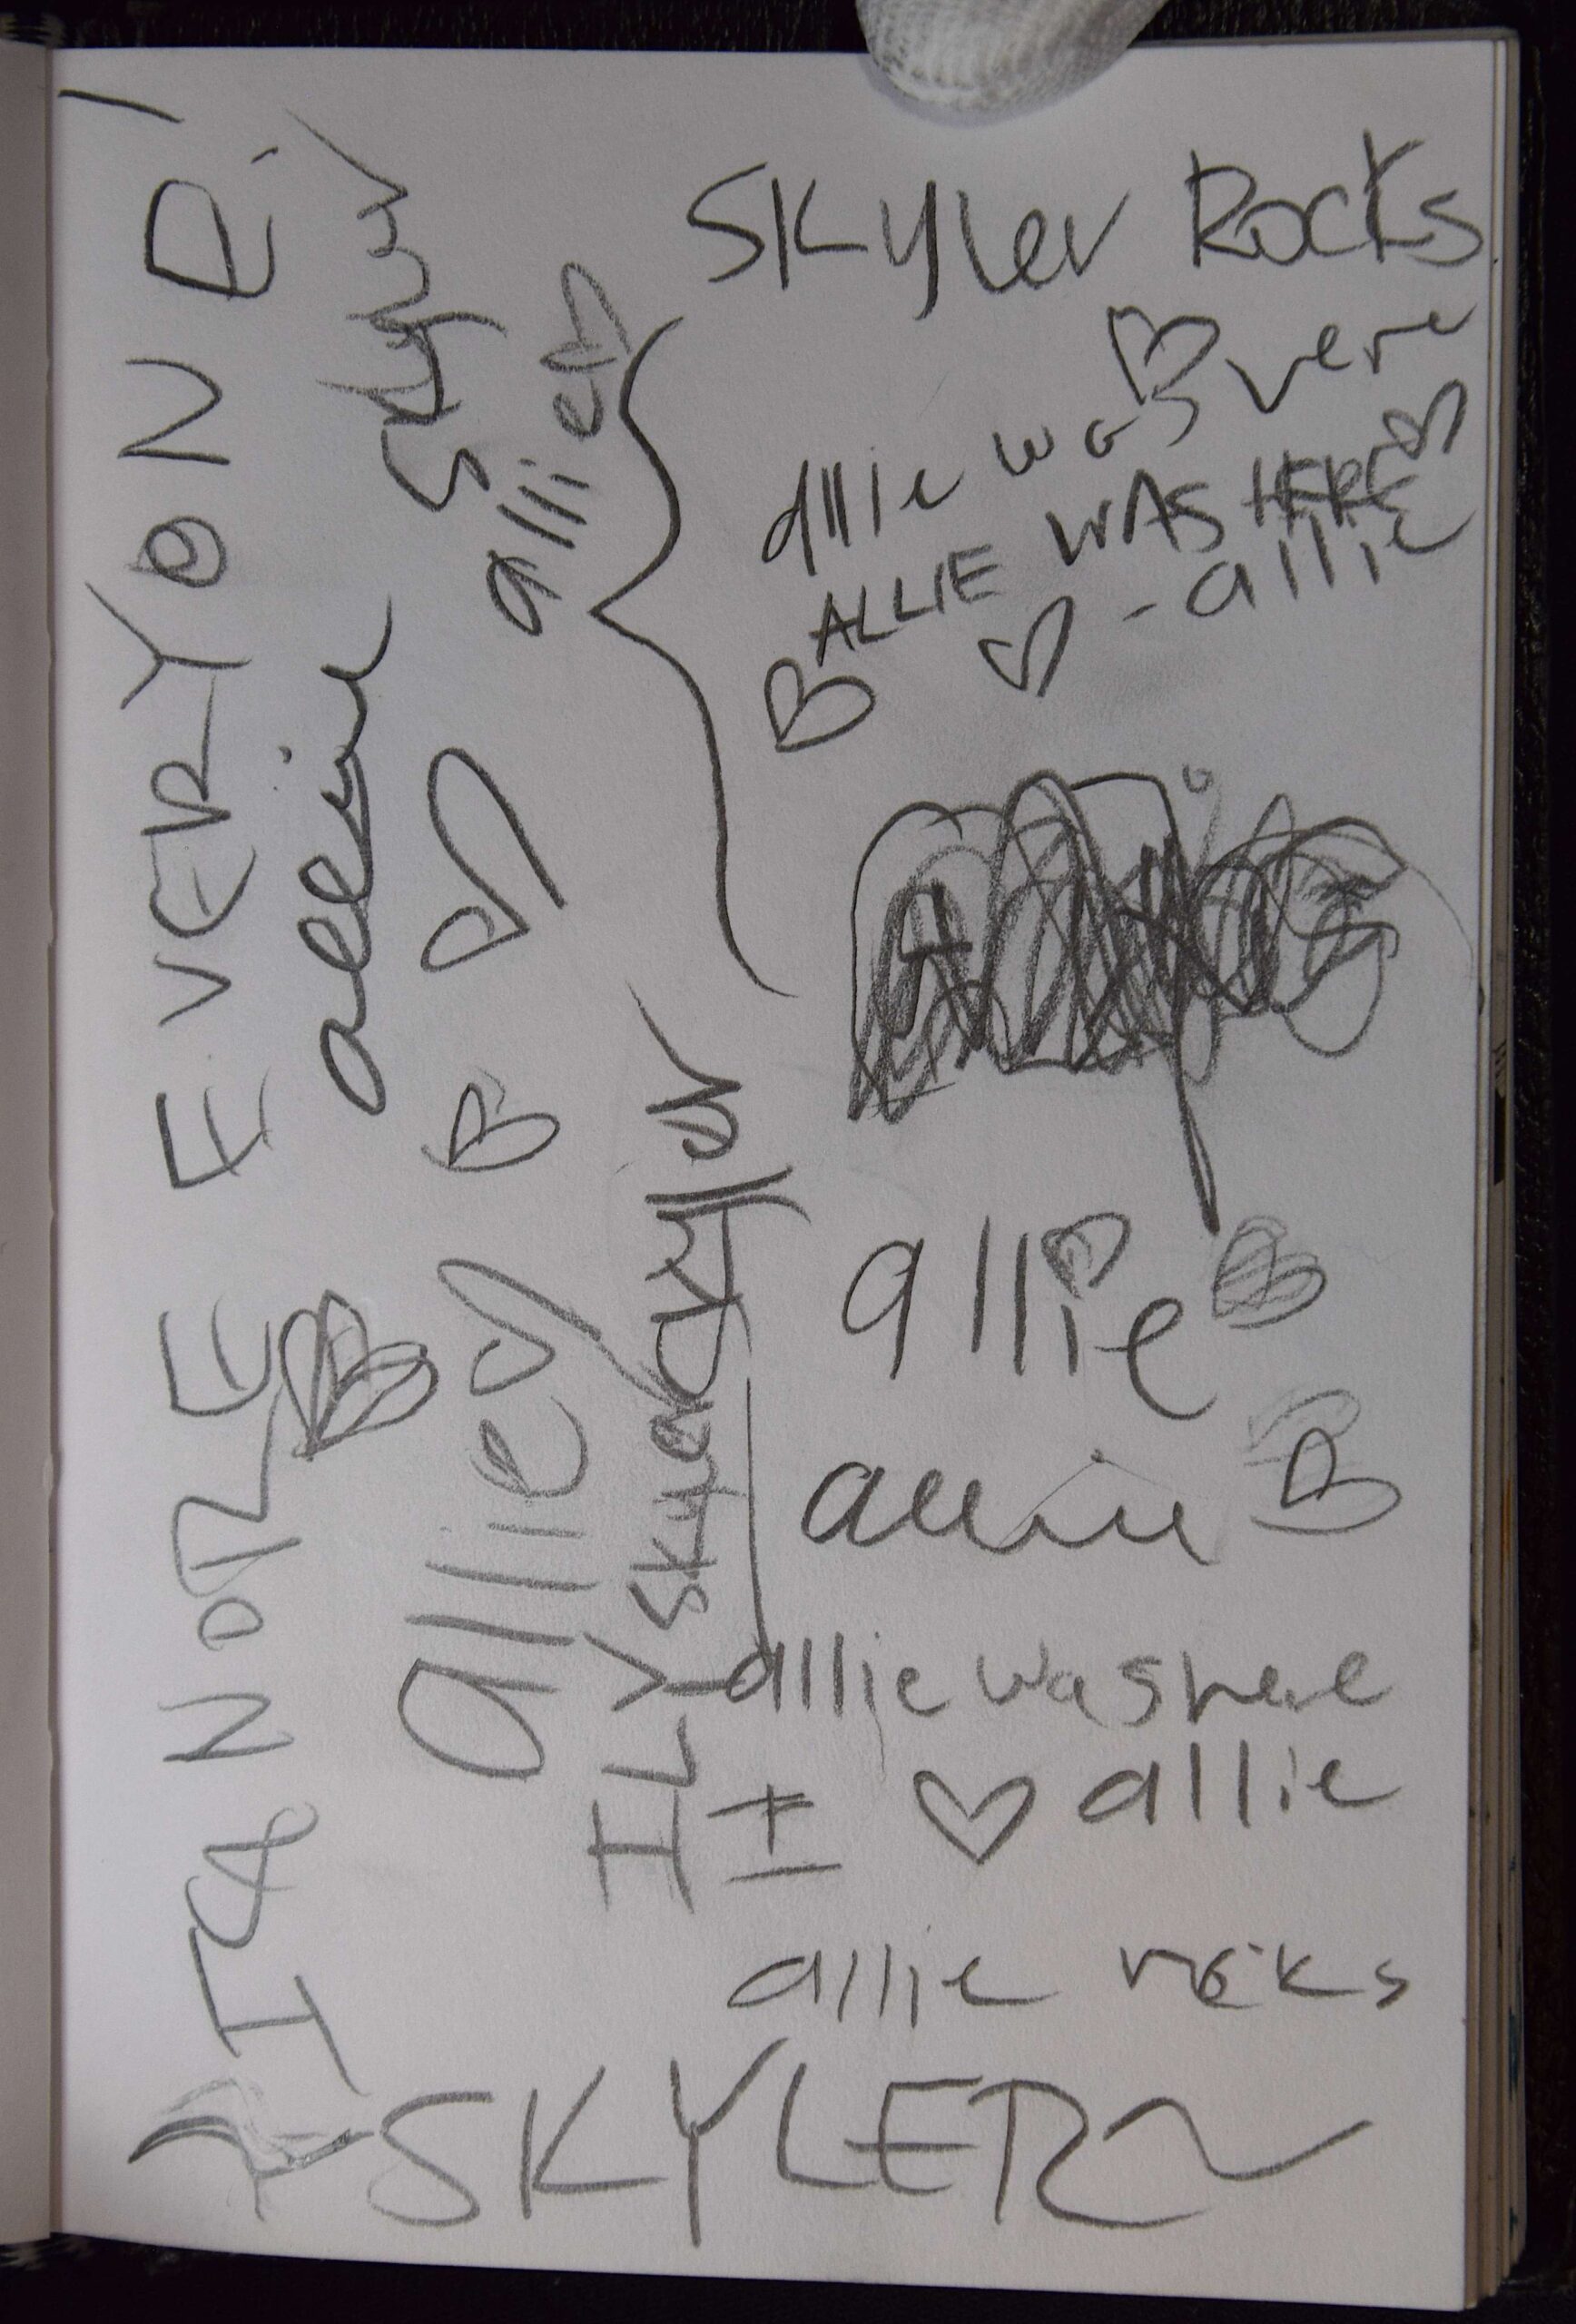 Skyler Rocks
allie was here
ALLIE WAS HERE
-allie
allie
allie
allie was here
I ♡ allie
allie rocks
SKYLER
I IGNORE EVERYONE
allie
skyler
allie
allie
ILY skyler
skyler